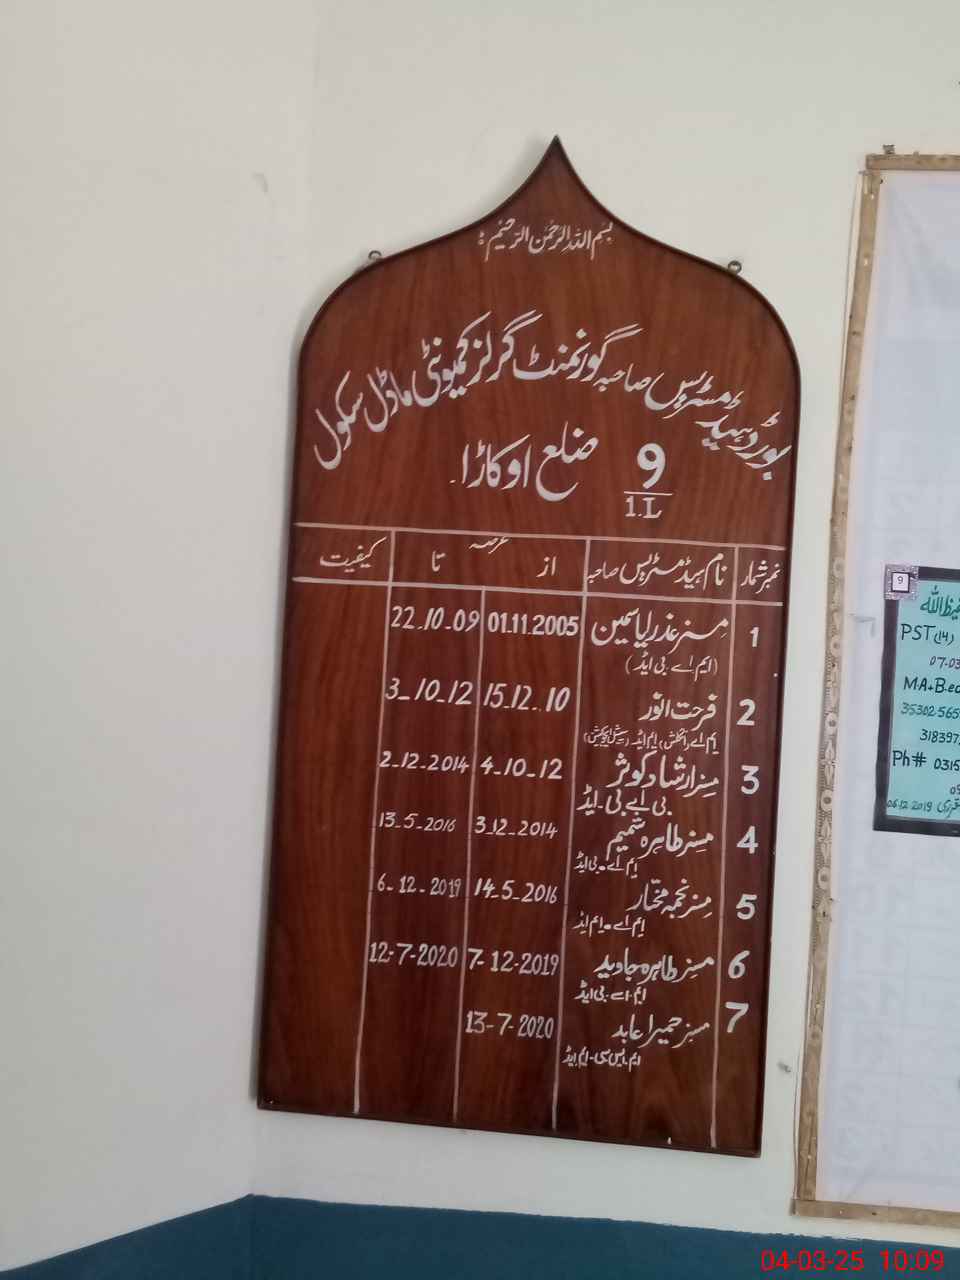 بسم اللہ الرحمٰن الرحیم
بورڈ ہیڈ مسٹریس صاحبہ گورنمنٹ گرلز کمیونٹی ماڈل سکول
9
1.L
ضلع اوکاڑا.
نمبر شمار نام ہیڈ مسٹریس صاحبہ عرصہ از تا کیفیت
1 مسز عذرا یاسمین 01.11.2005 22_10_09
(ایم اے بی ایڈ)
2 فرحت انور 15_12_10 3_10_12
ایم اے (انگلش) ایم ایڈ (سپیشل ایجوکیشن)
3 مسز ارشاد کوثر 4_10_12 2_12_2014
بی اے بی-ایڈ
4 مسز طاہرہ شمیم 3_12_2014 13_5_2016
ایم اے-بی ایڈ
5 مسز نجمہ مختار 14_5_2016 6_12_2019
ایم اے-ایم ایڈ
6 مسز طاہرہ جاوید 7-12-2019 12-7-2020
ایم-اے-بی ایڈ
7 مسز حمیرا عابد 13-7-2020
ایم ایس سی-ایم ایڈ
9
PST(14)
07-03
MA+B.ed
35302-565
318397
Ph# 0315
06.12.2019
04-03-25 10:09